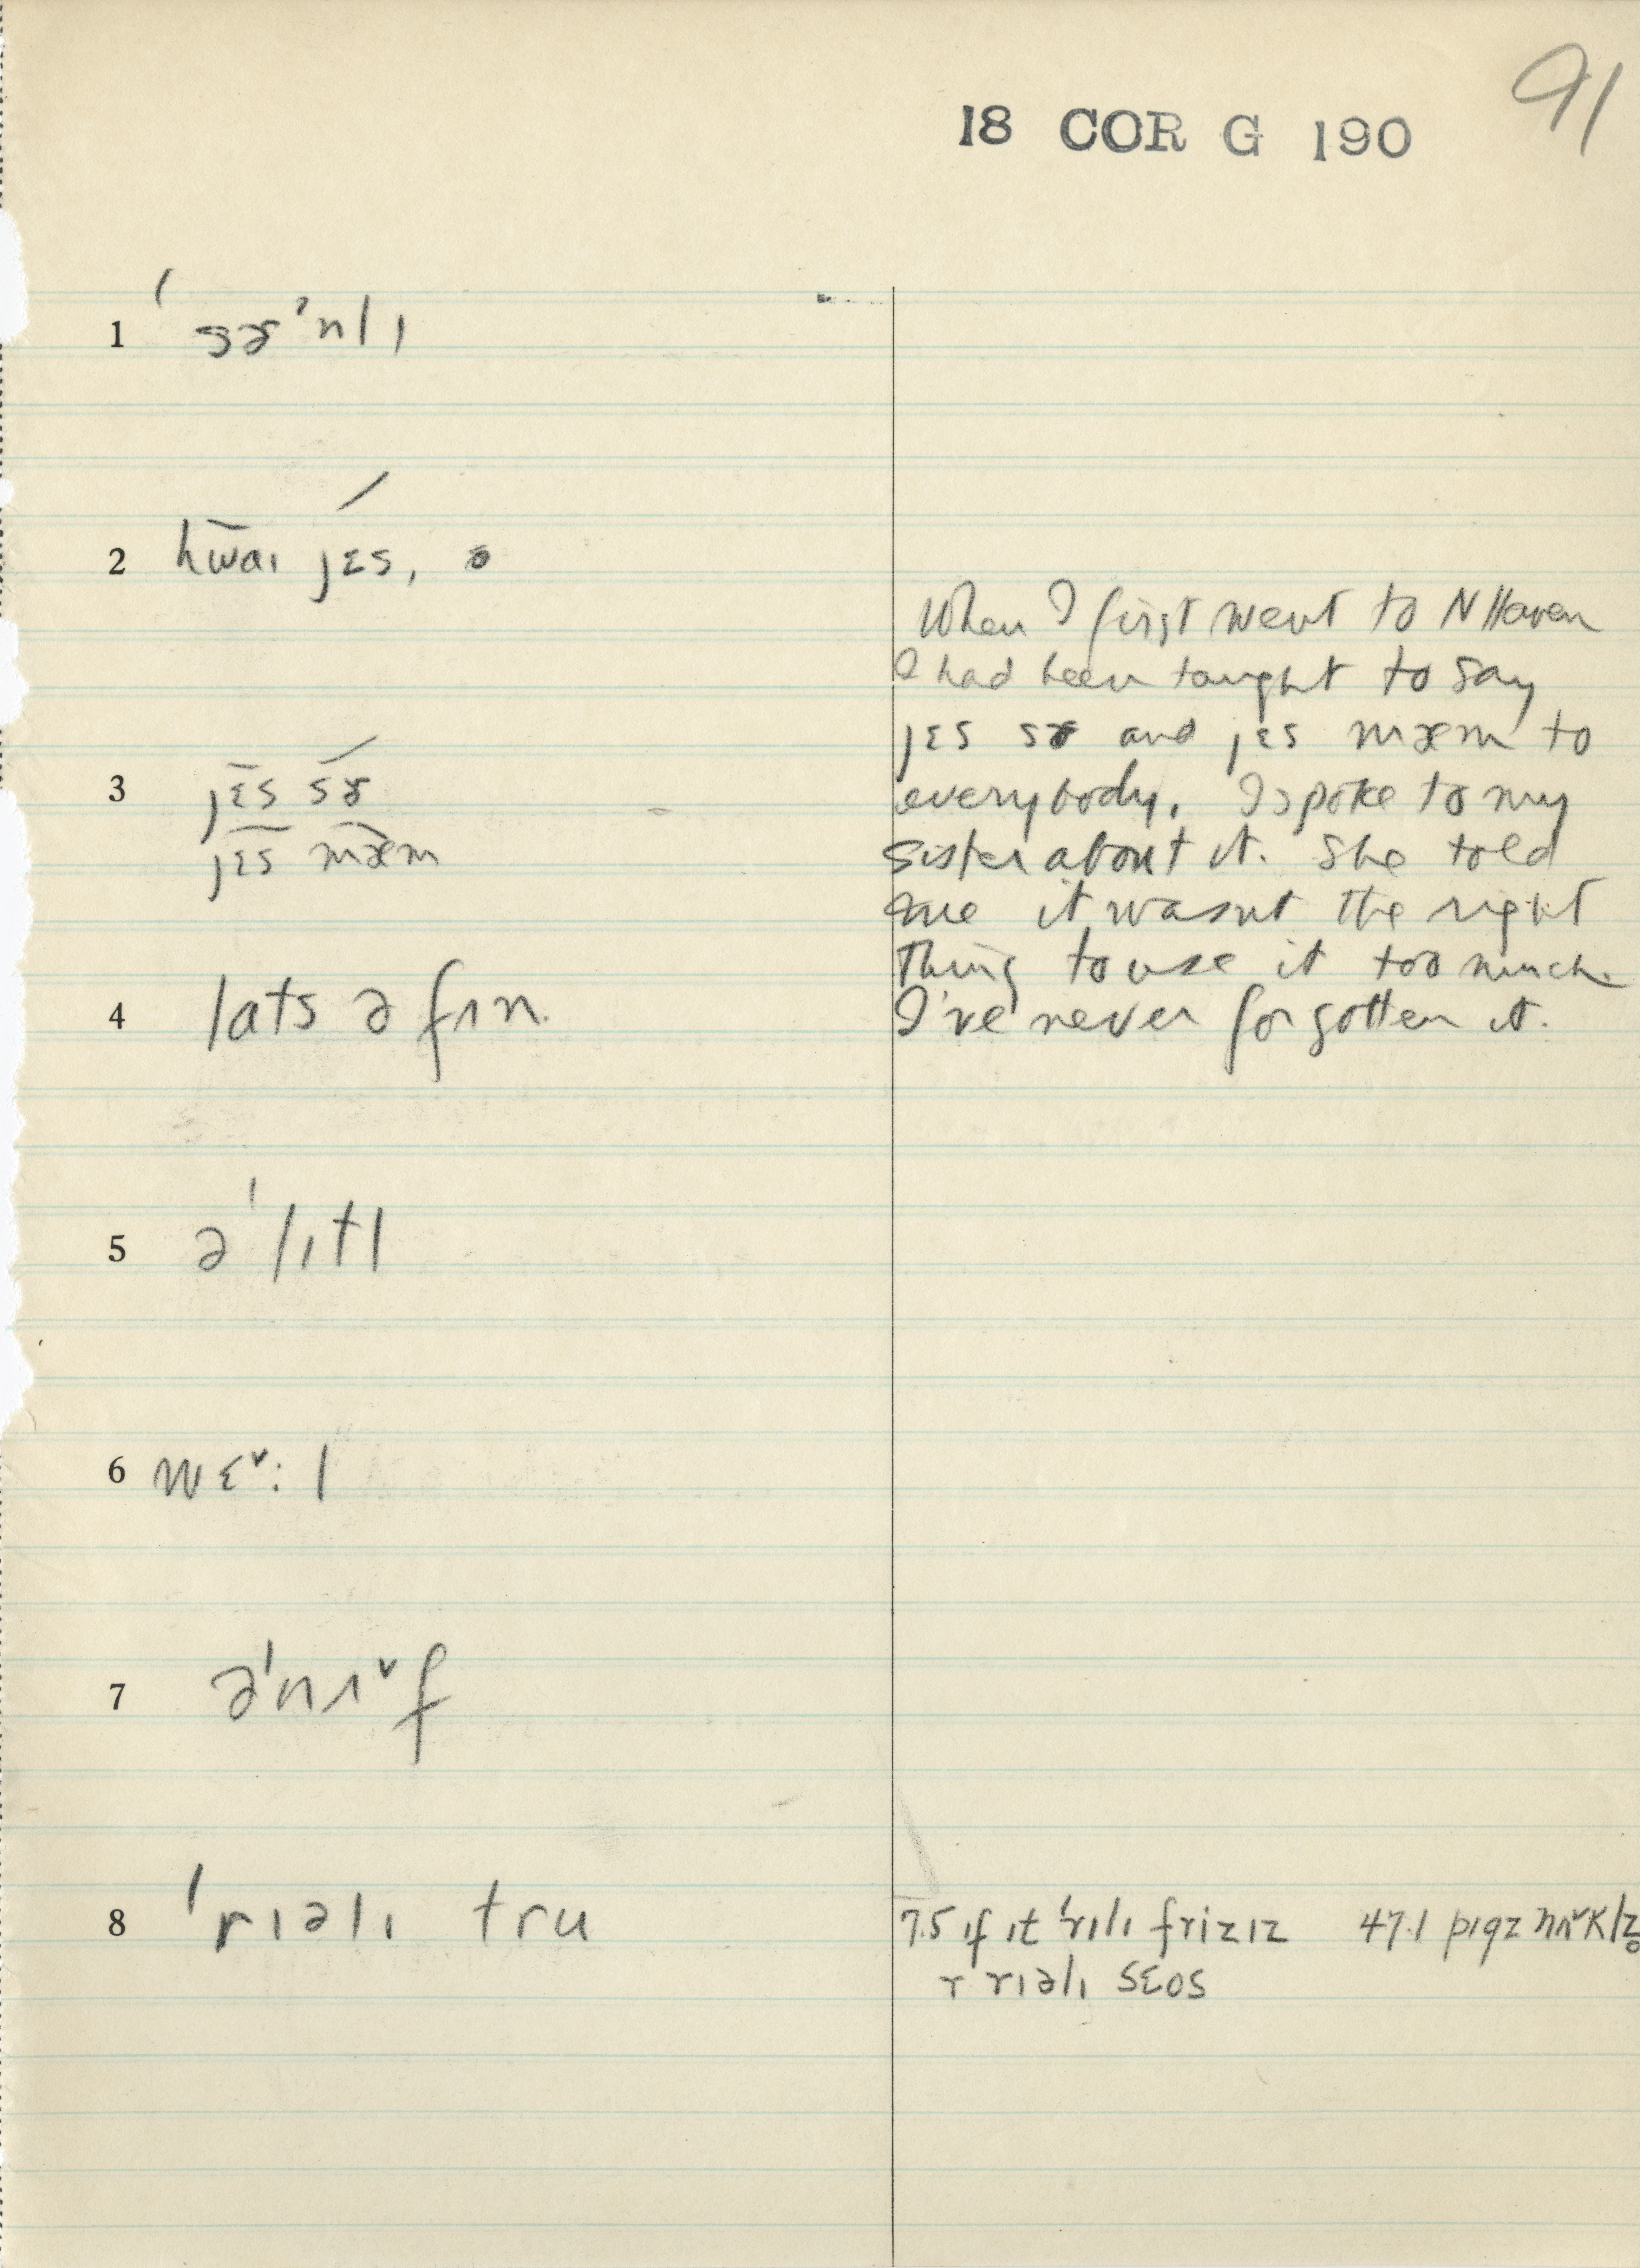 91
18 COR G 190
1 ˈsɚˈnlɪ
2 hw̄aɪ jɛs,
When I first went to N Haven
I had been taught to say
jɛs sɚ and jɛs mæm to
3 jɛ̄s sɚ́
everybody. I spoke to my
jɛ̄s mǣm
sister about it. She told
me it wasnt the right
thing to use it too much
4 lats ə fʌn
I've never forgotten it.
5 əˈlɪtl
6 wɛ˅: l
7 əˈnʌ˅f
8 ˈrɪəlɪ tru
7.5 ɪf ɪt ˈrɪlɪ frizɪz 47.1
r rɪəlɪ